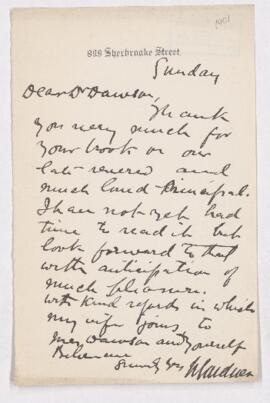 1901
889 Sherbrooke Street.
Sunday
Dear Dr Dawson,
Thank
you very much for
your book on our
late revered and
much loved Principal.
I have not yet had
time to read it but
look forward to that
with anticipation of
much pleasure.
With kind regards in which
my wife joins to
Mrs Dawson and yourself
Believe me
Sincerely yrs